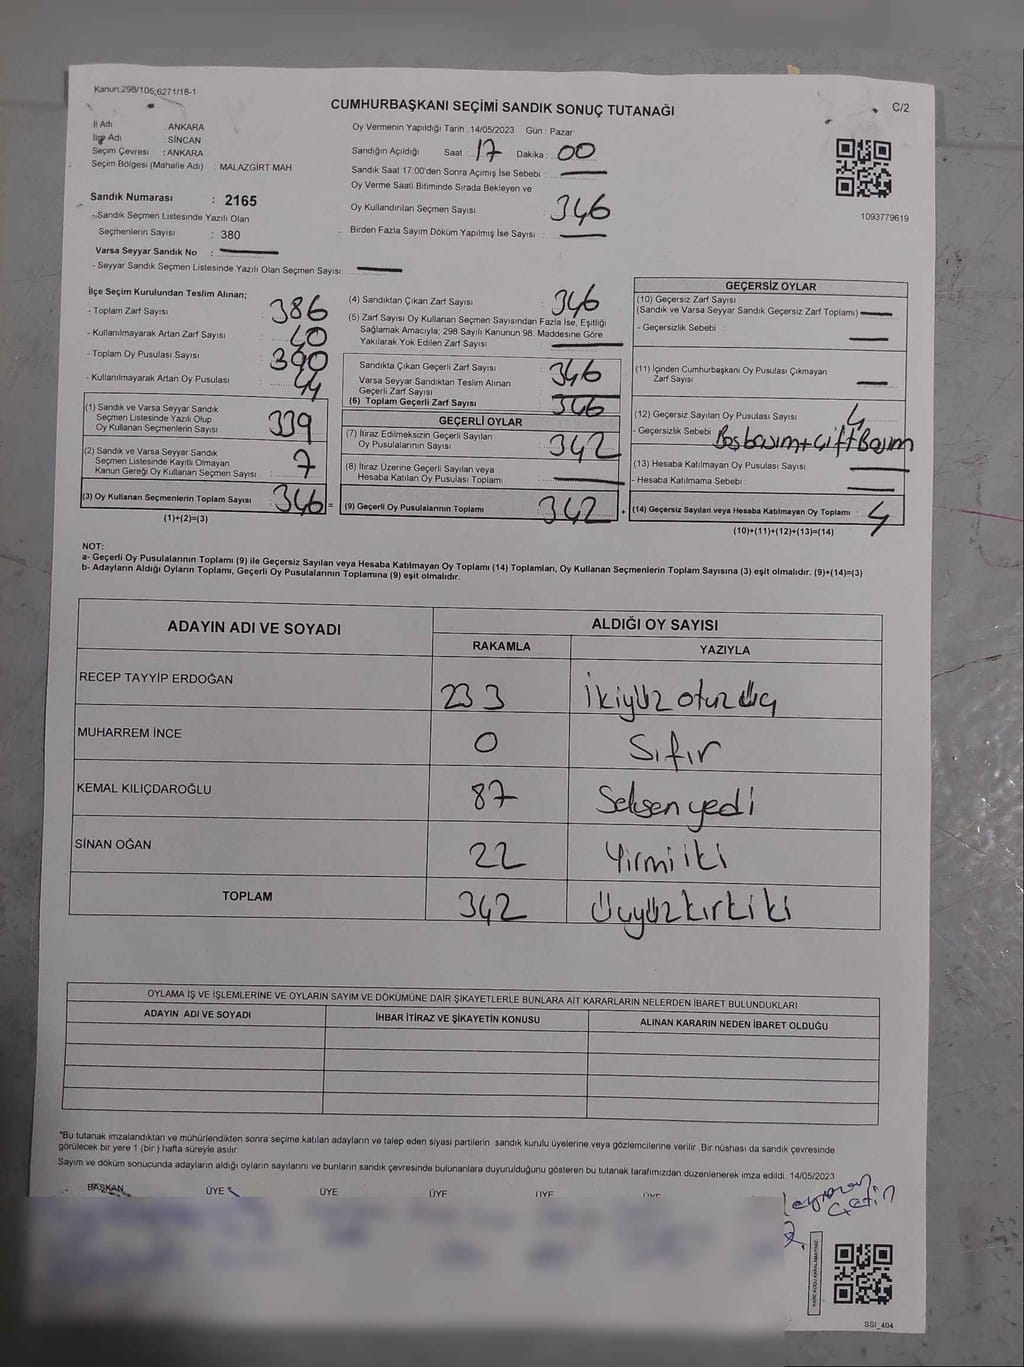 Kanun;298/105,6271/18-1
CUMHURBAŞKANI SEÇİMİ SANDIK SONUÇ TUTANAĞI
C/2
İl Adı : ANKARA
İlçe Adı : SİNCAN
Seçim Çevresi : ANKARA
Seçim Bölgesi (Mahalle Adı) : MALAZGİRT MAH
Sandık Numarası : 2165
- Sandık Seçmen Listesinde Yazılı Olan
Seçmenlerin Sayısı : 380
Varsa Seyyar Sandık No :
- Seyyar Sandık Seçmen Listesinde Yazılı Olan Seçmen Sayısı :
Oy Vermenin Yapıldığı Tarih : 14/05/2023 Gün : Pazar
Sandığın Açıldığı Saat : 17 Dakika : 00
Sandık Saat 17:00'den Sonra Açımış İse Sebebi :
Oy Verme Saati Bitiminde Sırada Bekleyen ve
Oy Kullandırılan Seçmen Sayısı : 346
Birden Fazla Sayım Döküm Yapılmış İse Sayısı :
1093779619
İlçe Seçim Kurulundan Teslim Alınan;
- Toplam Zarf Sayısı : 386
- Kullanılmayarak Artan Zarf Sayısı : 40
- Toplam Oy Pusulası Sayısı : 390
- Kullanılmayarak Artan Oy Pusulası : 44
(1) Sandık ve Varsa Seyyar Sandık
Seçmen Listesinde Yazılı Olup
Oy Kullanan Seçmenlerin Sayısı : 339
(2) Sandık ve Varsa Seyyar Sandık
Seçmen Listesinde Kayıtlı Olmayan
Kanun Gereği Oy Kullanan Seçmen Sayısı : 7
(3) Oy Kullanan Seçmenlerin Toplam Sayısı : 346 =
(1)+(2)=(3)
(4) Sandıktan Çıkan Zarf Sayısı : 346
(5) Zarf Sayısı Oy Kullanan Seçmen Sayısından Fazla İse, Eşitliği
Sağlamak Amacıyla; 298 Sayılı Kanunun 98. Maddesine Göre
Yakılarak Yok Edilen Zarf Sayısı :
Sandıkta Çıkan Geçerli Zarf Sayısı : 346
Varsa Seyyar Sandıktan Teslim Alınan
Geçerli Zarf Sayısı :
(6) Toplam Geçerli Zarf Sayısı : 346
GEÇERLİ OYLAR
(7) İtiraz Edilmeksizin Geçerli Sayılan
Oy Pusulalarının Sayısı : 342
(8) İtiraz Üzerine Geçerli Sayılan veya
Hesaba Katılan Oy Pusulası Toplamı :
(9) Geçerli Oy Pusulalarının Toplamı : 342 +
GEÇERSİZ OYLAR
(10) Geçersiz Zarf Sayısı
(Sandık ve Varsa Seyyar Sandık Geçersiz Zarf Toplamı) :
- Geçersizlik Sebebi :
(11) İçinden Cumhurbaşkanı Oy Pusulası Çıkmayan
Zarf Sayısı :
(12) Geçersiz Sayılan Oy Pusulası Sayısı : 4
- Geçersizlik Sebebi : Boş basım+Çift Basım
(13) Hesaba Katılmayan Oy Pusulası Sayısı :
- Hesaba Katılmama Sebebi :
(14) Geçersiz Sayılan veya Hesaba Katılmayan Oy Toplamı : 4
(10)+(11)+(12)+(13)=(14)
NOT:
a- Geçerli Oy Pusulalarının Toplamı (9) ile Geçersiz Sayılan veya Hesaba Katılmayan Oy Toplamı (14) Toplamları, Oy Kullanan Seçmenlerin Toplam Sayısına (3) eşit olmalıdır. (9)+(14)=(3)
b- Adayların Aldığı Oyların Toplamı, Geçerli Oy Pusulalarının Toplamına (9) eşit olmalıdır.
ADAYIN ADI VE SOYADI ALDIĞI OY SAYISI
RAKAMLA YAZIYLA
RECEP TAYYİP ERDOĞAN 233 İkiyüz otuz üç
MUHARREM İNCE 0 Sıfır
KEMAL KILIÇDAROĞLU 87 Seksen yedi
SİNAN OĞAN 22 Yirmi iki
TOPLAM 342 Üçyüzkırkiki
OYLAMA İŞ VE İŞLEMLERİNE VE OYLARIN SAYIM VE DÖKÜMÜNE DAİR ŞİKAYETLERLE BUNLARA AİT KARARLARIN NELERDEN İBARET BULUNDUKLARI
ADAYIN ADI VE SOYADI İHBAR İTİRAZ VE ŞİKAYETİN KONUSU ALINAN KARARIN NEDEN İBARET OLDUĞU
*Bu tutanak imzalandıktan ve mühürlendikten sonra seçime katılan adayların ve talep eden siyasi partilerin sandık kurulu üyelerine veya gözlemcilerine verilir. Bir nüshası da sandık çevresinde
görülecek bir yere 1 (bir) hafta süreyle asılır.
Sayım ve döküm sonucunda adayların aldığı oyların sayılarını ve bunların sandık çevresinde bulunanlara duyurulduğunu gösteren bu tutanak tarafımızdan düzenlenerek imza edildi. 14/05/2023
BAŞKAN ÜYE ÜYE ÜYE ÜYE ÜYE
Çetin
KARE KODU KARALAMAYINIZ!
SSI_404